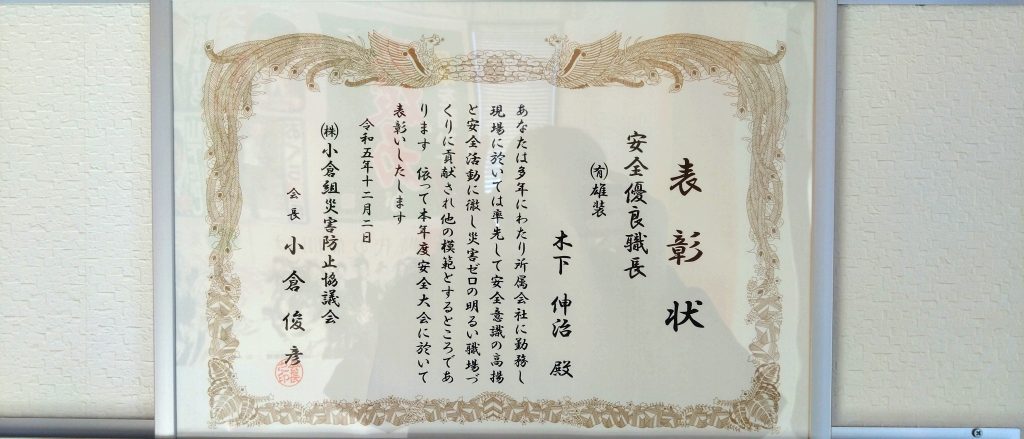 表彰状
安全優良職長
㈲雄装
木下 伸治 殿
あなたは多年にわたり所属会社に勤務し
現場に於いては率先して安全意識の高揚
と安全活動に徹し災害ゼロの明るい職場づ
くりに貢献され他の模範とするところであ
ります 依って本年度安全大会に於いて
表彰いたします
令和五年十二月二日
㈱小倉組災害防止協議会
会長 小倉 俊彦